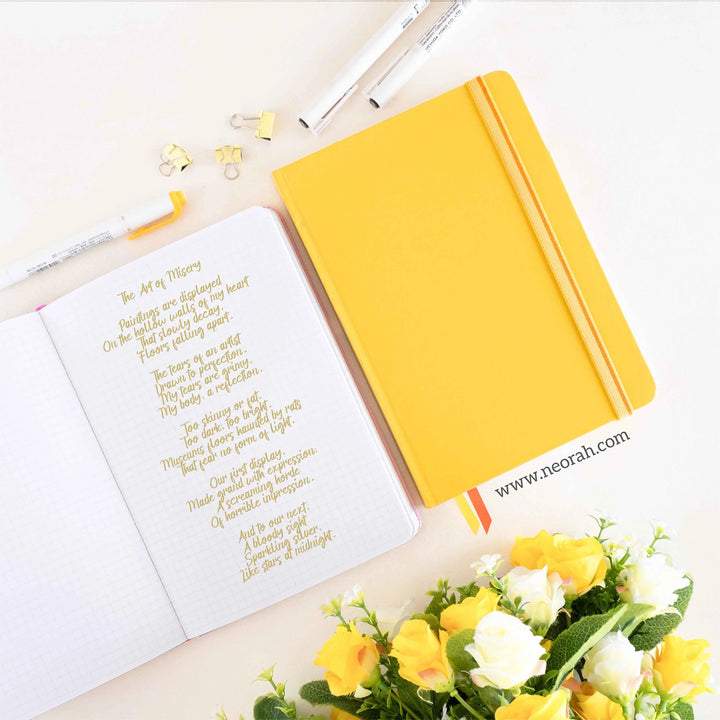 The Art of Misery
Paintings are displayed
On the hollow walls of my heart
That slowly decay,
Floors falling apart.
The tears of an artist
Drawn to perfection.
My tears are grimy,
My body, a reflection.
Too skinny or fat,
Too dark, too bright
Museums floors haunted by rats
That fear no form of light.
Our first display,
Made grand with expression.
A screaming horde
Of horrible impression.
And to our next,
A bloody sight
Sparkling silver,
Like stars at midnight.
www.neorah.com